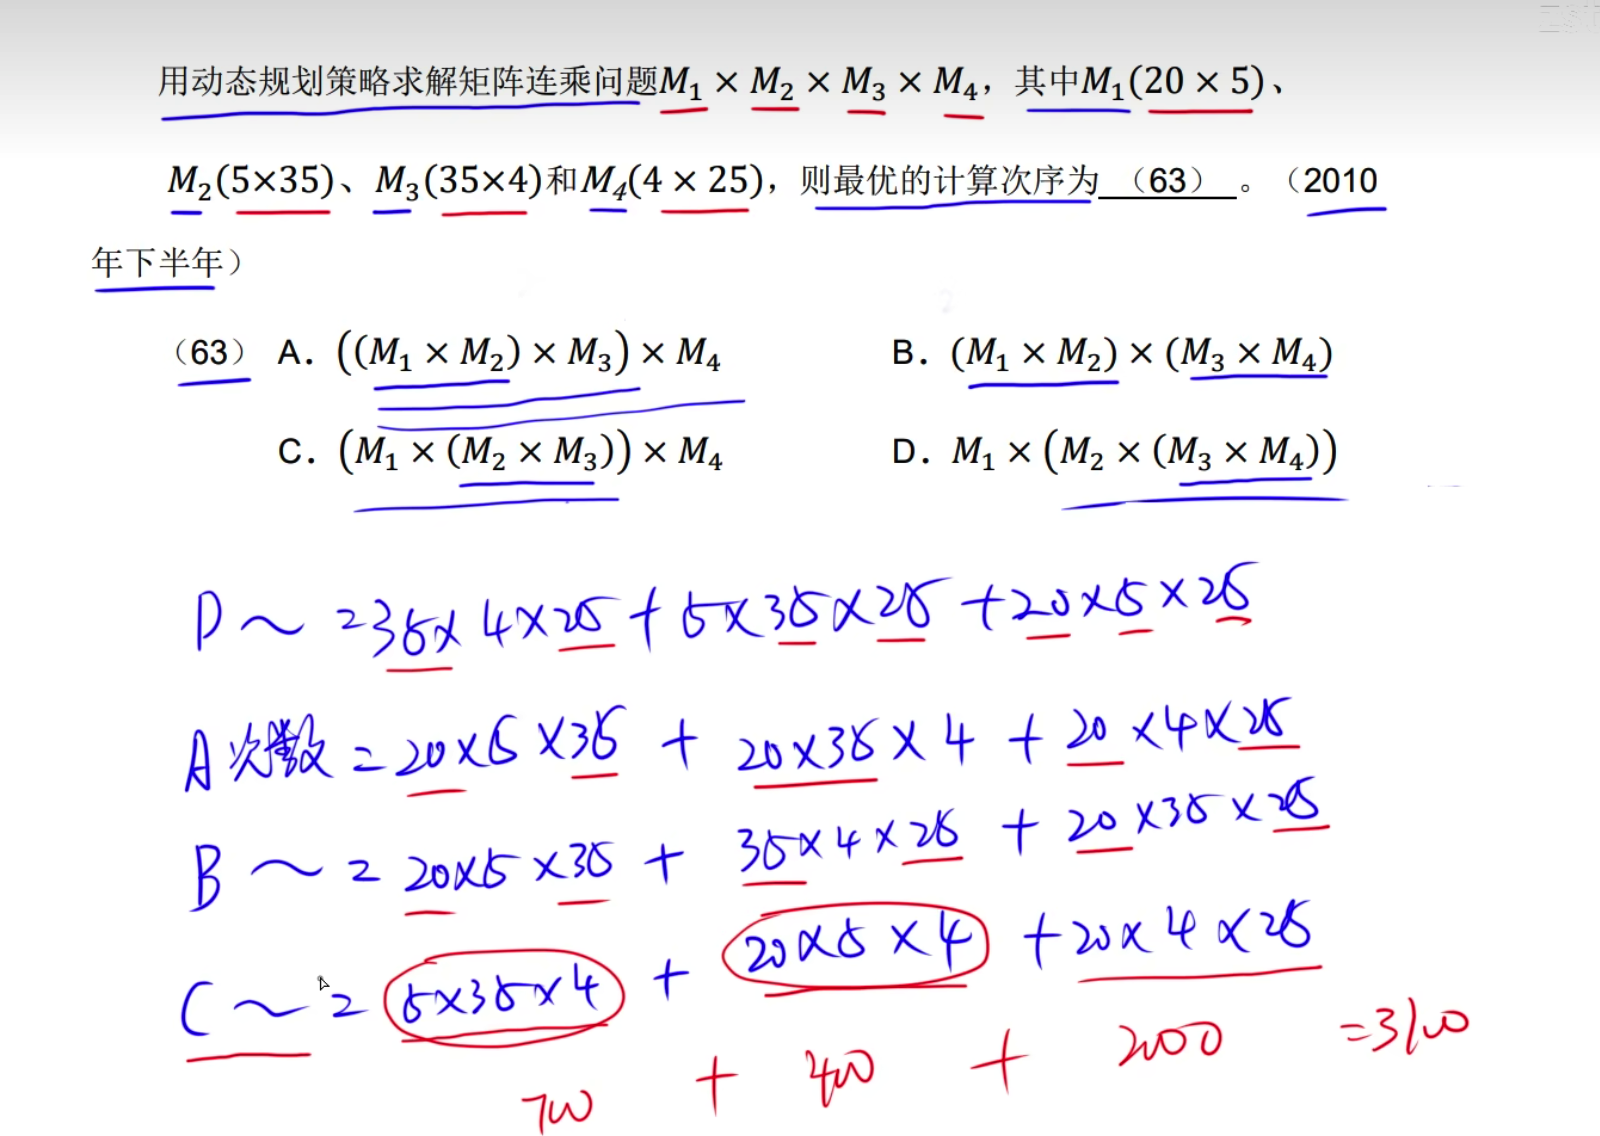 用动态规划策略求解矩阵连乘问题M₁ × M₂ × M₃ × M₄，其中M₁(20 × 5)、
M₂(5×35)、M₃(35×4)和M₄(4 × 25)，则最优的计算次序为 （63） 。（2010
年下半年）
（63） A. ((M₁ × M₂) × M₃) × M₄ B. (M₁ × M₂) × (M₃ × M₄)
C. (M₁ × (M₂ × M₃)) × M₄ D. M₁ × (M₂ × (M₃ × M₄))
D ~ =35×4×25+5×35×25+20×5×25
A次数=20×5×35+20×35×4+20×4×25
B ~ =20×5×35+35×4×25+20×35×25
C ~ =5×35×4+20×5×4+20×4×25
700+400+2000=3100